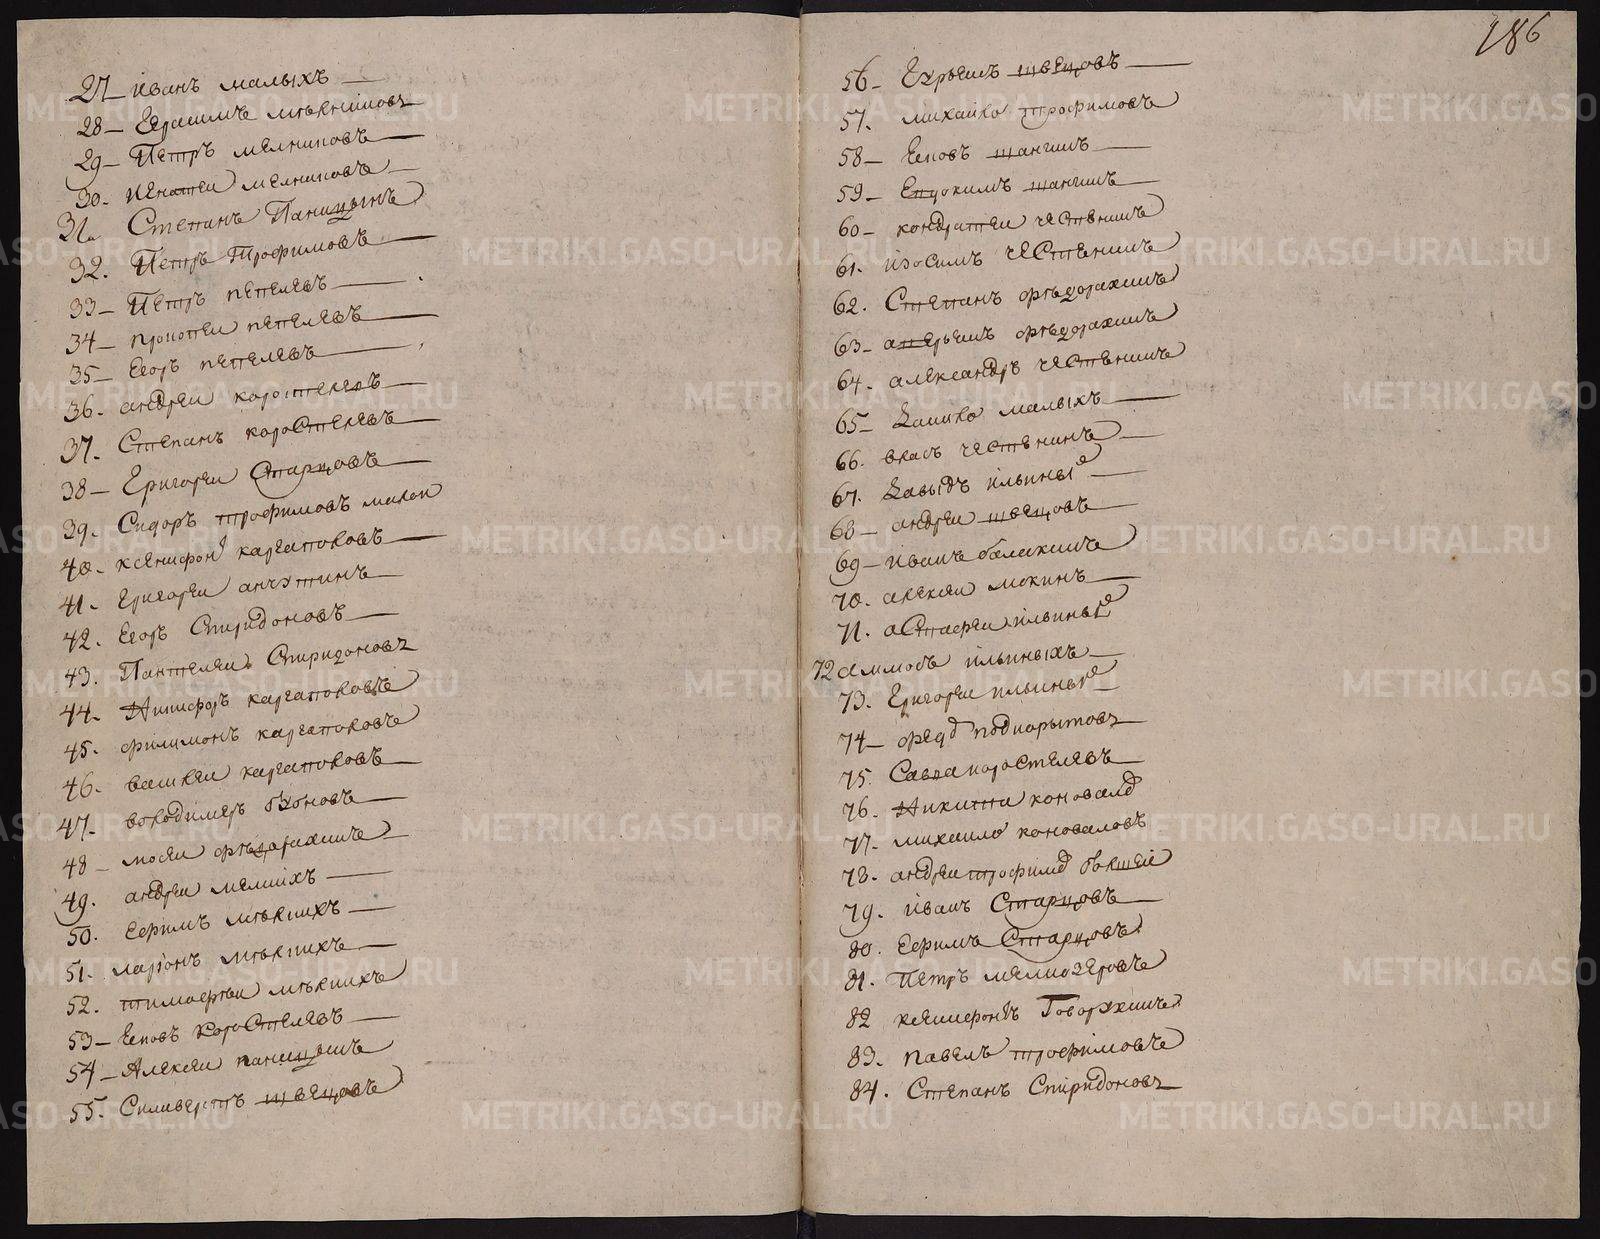 186
27 иванъ малыхъ
28 Герасимъ мѣлниковъ
29 Петръ мелниковъ
30. игнатеи мелниковъ
31. Степанъ Паницынъ
32. Петръ Трофимовъ
33 Петръ пепелевъ
34 прокопеи пепелевъ
35 Егоръ пепелевъ
36. андреи коростелевъ
37. Степанъ коростелевъ
38 Григореи Старцовъ
39. Сидоръ трофимовъ малои
40. ксенифонъ каргаполовъ
41. григореи анчутинъ
42. Егоръ Спиридоновъ
43. Пантелеи Спиридоновъ
44. Никифоръ каргаполовъ
45. филимонъ каргаполовъ
46. василеи каргаполовъ
47. володимеръ
48 мосеи фѣдорахинъ
49. андреи мелкихъ
50. Ефимъ мѣлкихъ
51. ларионъ мѣлкихъ
52. тимофѣи мѣлкихъ
53 Ековъ коростелевъ
54 Алексеи паницынъ
55. Силиверстъ швецовъ
56 швецовъ
57. михаило трофимовъ
58 Ековъ шангинъ
59 Евдокимъ шангинъ
60 кондратеи чественинъ
61. изосимъ чественинъ
62. Степанъ фѣдорахинъ
63 аверьеинъ фѣдорахинъ
64. александръ чественинъ
65 малыхъ
66. власъ чественинъ
67. Давыдъ ильиныхъ
68 андреи швецовъ
69 иванъ балакинъ
70. алексеи мокинъ
71. аСтафеи ильиныхъ
72 аммосъ ильиныхъ
73. Григореи ильиныхъ
74 федоръ подкорытовъ
75. Савва коростелевъ
76. Никита коновалов
77. михаило коноваловъ
78. андреи трофимов болшеи
79. иванъ Старцовъ
80. Ефимъ Старцовъ
81. Петръ мелнозеровъ
82 ксенифонтъ Говорхинъ
83. павелъ трофимовъ
84. Степанъ Спиридоновъ
METRIKI.GASO-URAL.RU